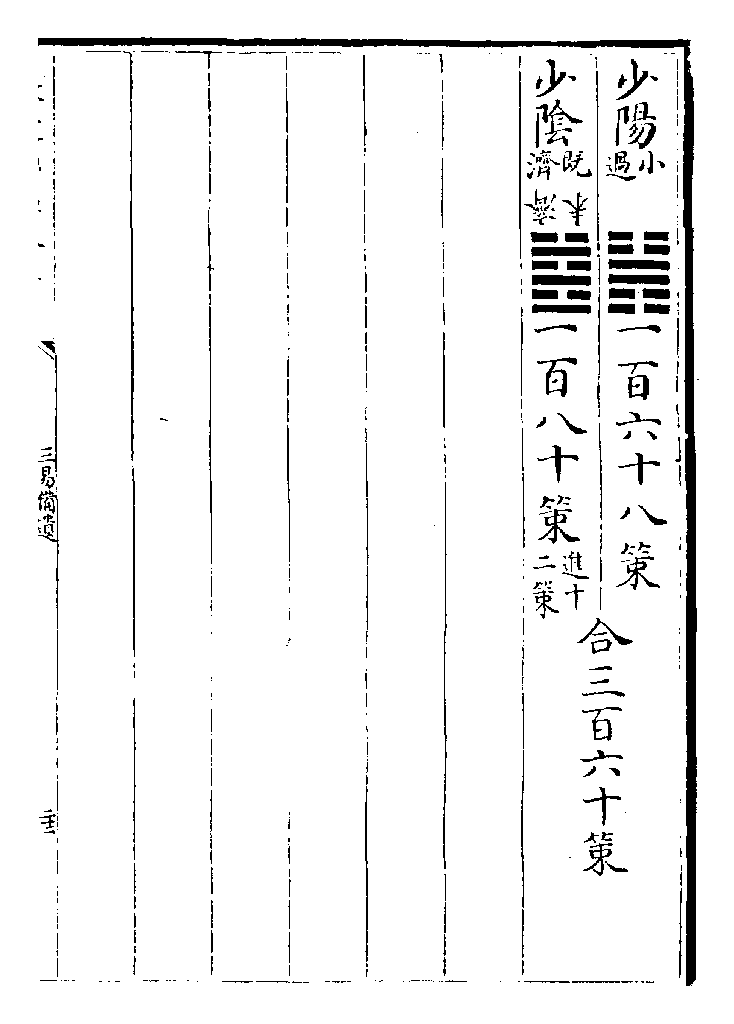 少陽小過䷽一百六十八策
少陰既濟未濟䷾一百八十策進十二策
合三百六十策
三易備遺